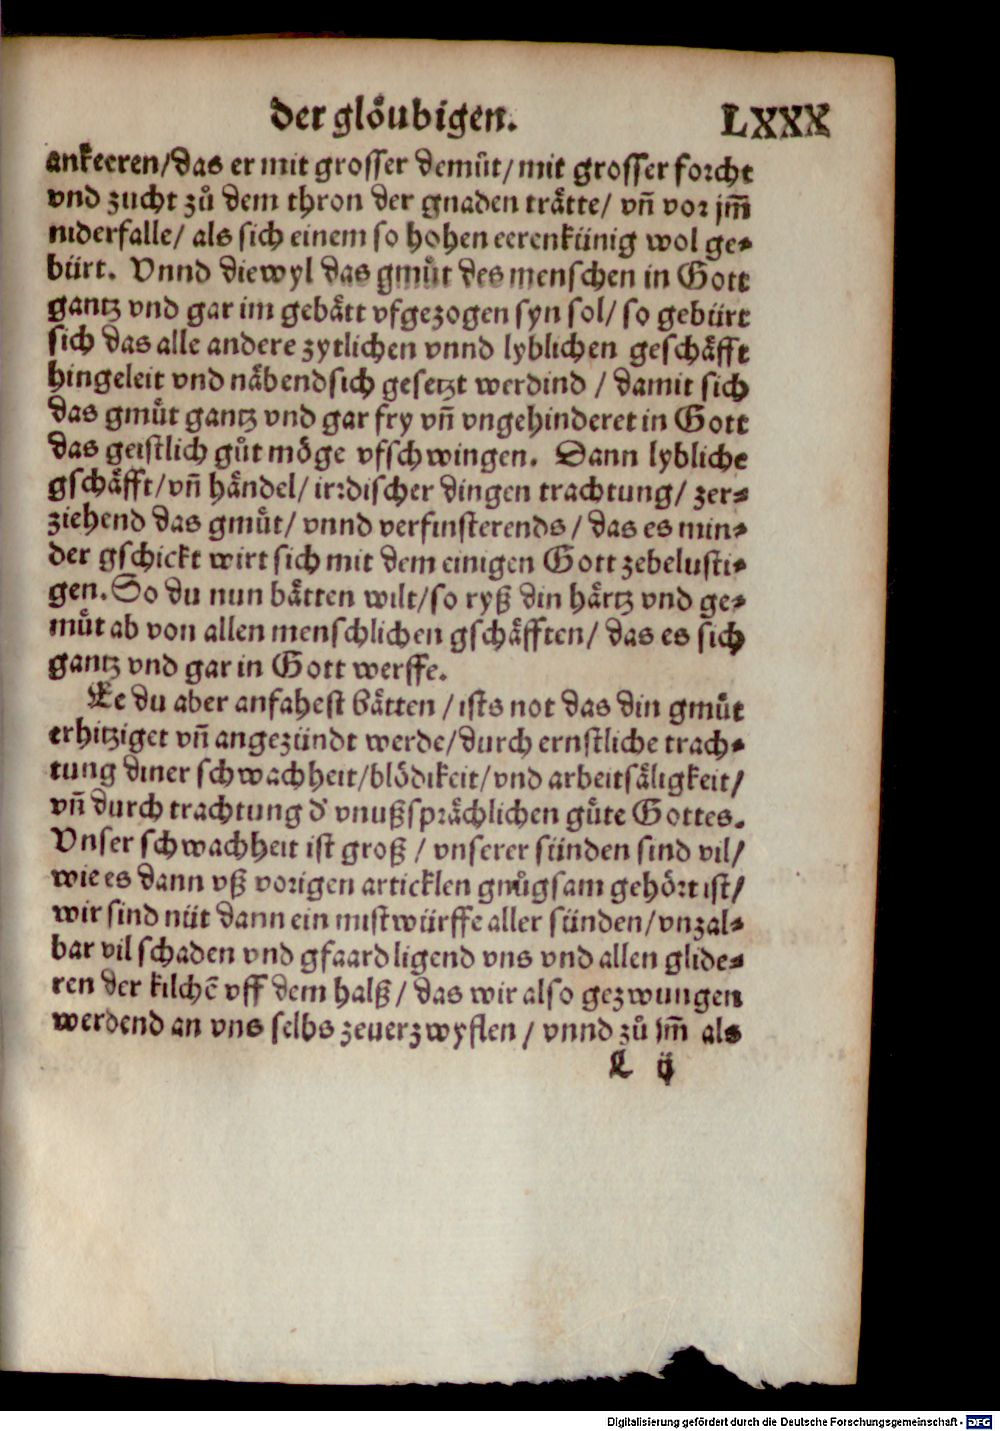 der gloͤubigen. LXXX
ankeeren/das er mit grosser demuͤt/mit grosser forcht
vnd zucht zuͦ dem thron der gnaden traͤtte/ vñ vor jm̃
niderfalle/ als sich einem so hohen eerenkünig wol ge⸗
bürt. Vnnd diewyl das gmuͤt des menschen in Gott
gantz vnd gar im gebaͤtt vfgezogen syn sol/ so gebürt
sich das alle andere zytlichen vnnd lyblichen geschaͤfft
hingeleit vnd naͤbendsich gesetzt werdind / damit sich
das gmuͤt gantz vnd gar fry vñ vngehinderet in Gott
das geistlich guͦt moͤge vfschwingen. Dann lybliche
gschaͤfft/vñ haͤndel/ irrdischer dingen trachtung/ zer⸗
ziehend das gmuͤt/ vnnd verfinsterends / das es min⸗
der gschickt wirt sich mit dem einigen Gott zebelusti⸗
gen. So du nun baͤtten wilt/so ryß din haͤrtz vnd ge⸗
muͤt ab von allen menschlichen gschaͤfften/ das es sich
gantz vnd gar in Gott werffe.
Ee du aber anfahest baͤtten / ists not das din gmuͤt
erhitziget vñ angezündt werde/durch ernstliche trach⸗
tung diner schwachheit/bloͤdikeit/vnd arbeitsaͤligkeit/
vñ durch trachtung d' vnußspraͤchlichen guͤte Gottes.
Vnser schwachheit ist groß / vnserer sünden sind vil/
wie es dann vß vorigen articklen gnuͦgsam gehoͤrt ist/
wir sind nüt dann ein mistwürffe aller sünden/vnzal⸗
bar vil schaden vnd gfaard ligend vns vnd allen glide⸗
ren der kilchẽ vff dem halß / das wir also gezwungen
werdend an vns selbs zeuerzwyflen / vnnd zuͦ jm̃ als
L ij
Digitalisierung gefördert durch die Deutsche Forschungsgemeinschaft - DFG